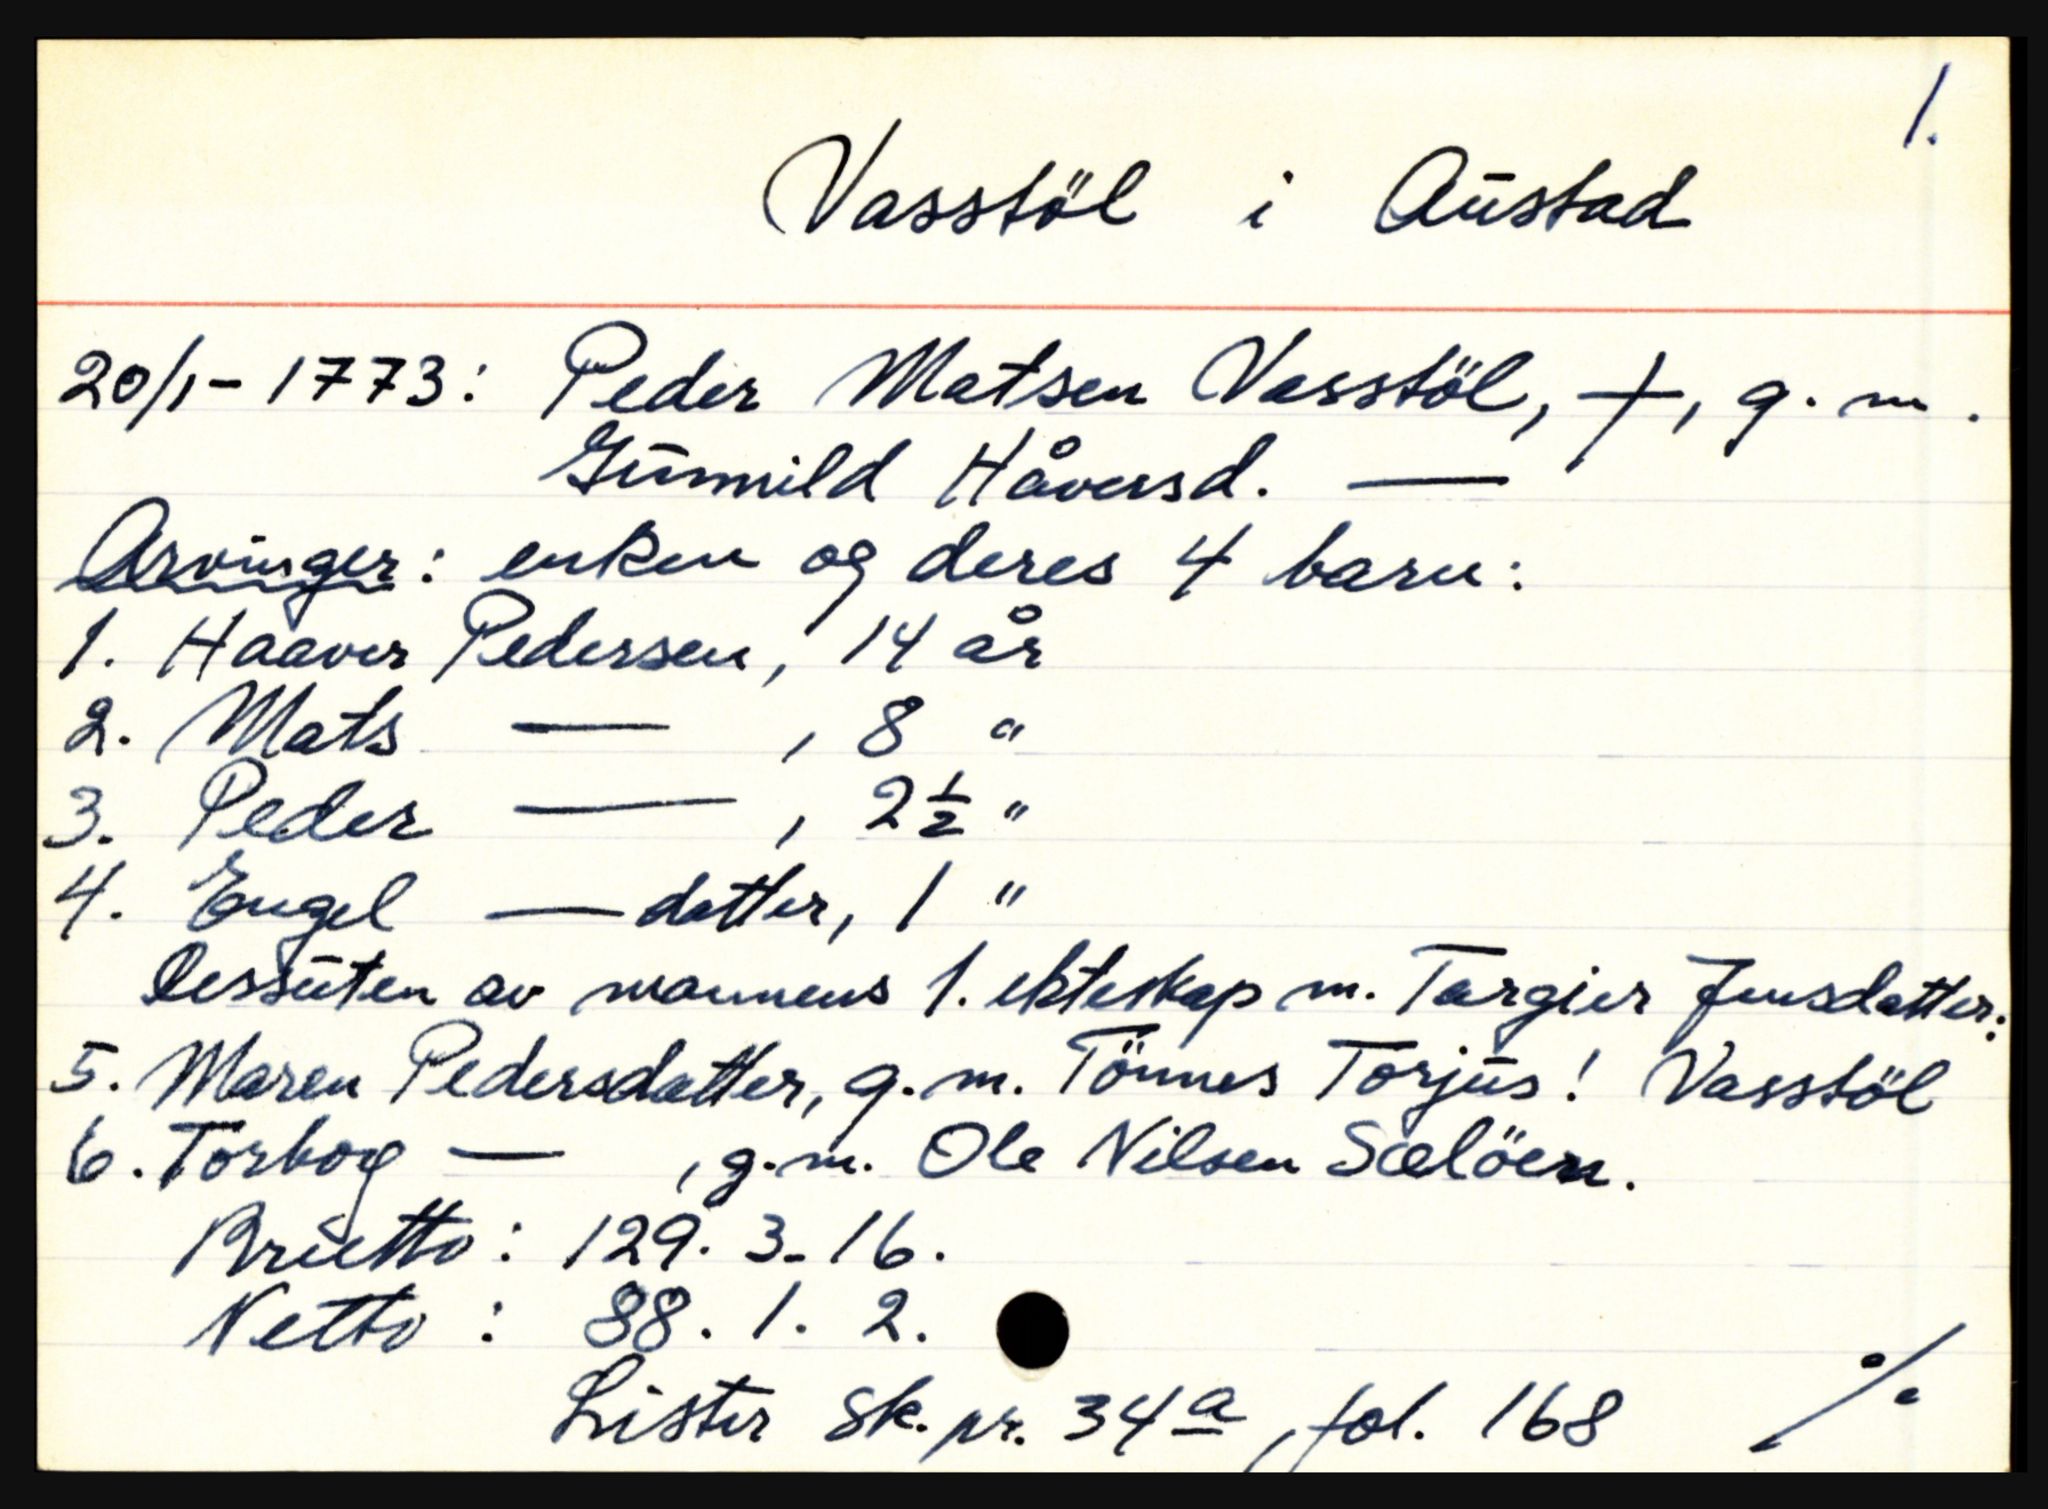 1.
Vasstöl i Austad
20/1-1773: Peder Matsen Vasstöl, †, g. m.
Gunnild Håversd. —
Arvinger: enken og deres 4 barn:
1. Haaver Pedersen, 14 år
2. Mats — , 8 "
3. Peder — , 2 1/2 "
4. Engel — datter, 1 "
Dessuten av mannens 1. ekteskap m. Targier Jensdatter:
5. Maren Pedersdatter, g. m. Tönnes Torjus! Vasstöl
6. Torbog — , g. m. Ole Nilsen Sælöen.
Brutto: 129. 3. 16.
Netto: 88. 1. 2.
Lister sk. pr. 34a, fol. 168 ·/.